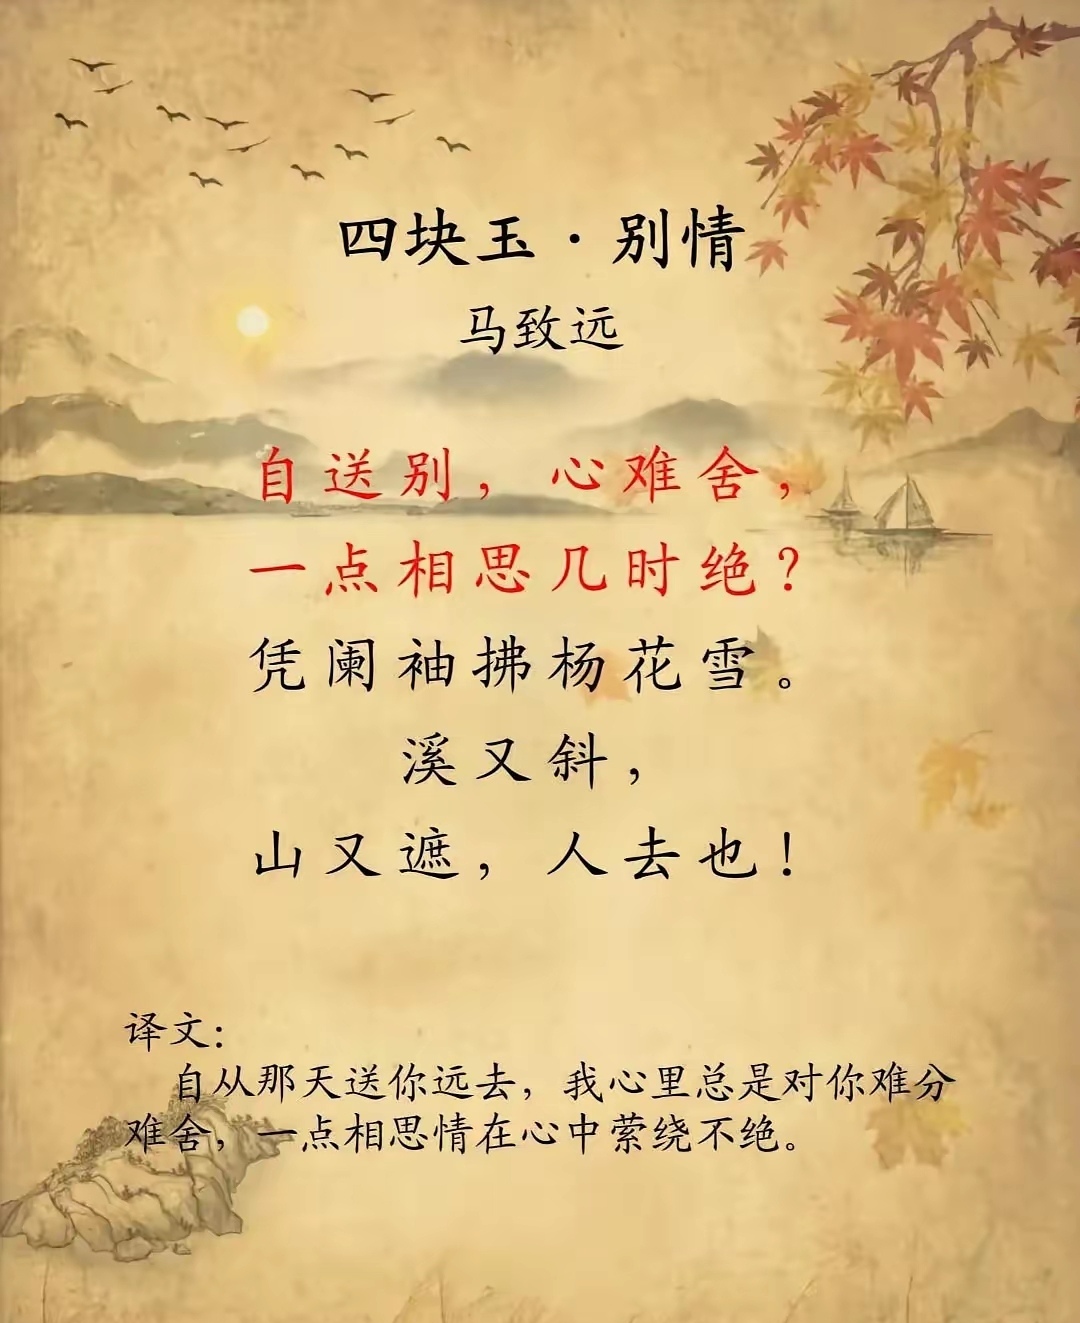 四块玉·别情
马致远
自送别，心难舍，
一点相思几时绝？
凭阑袖拂杨花雪。
溪又斜，
山又遮，人去也！
译文：
自从那天送你远去，我心里总是对你难分
难舍，一点相思情在心中萦绕不绝。